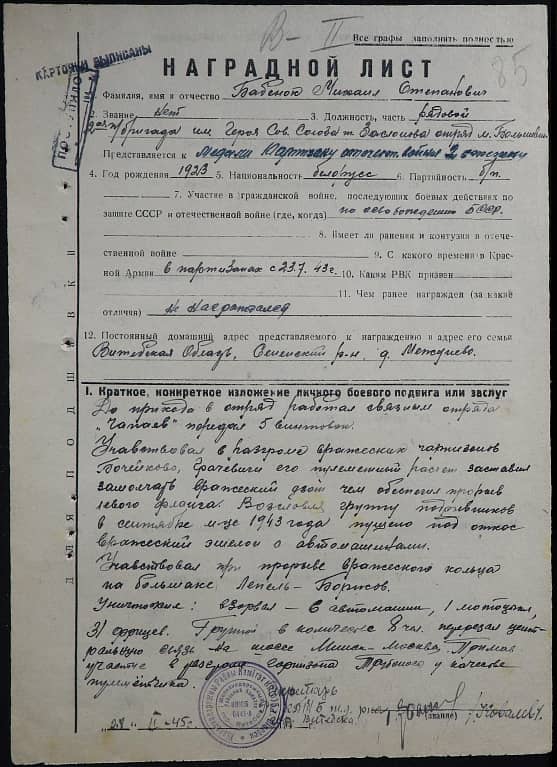 В – II
Все графы заполнить полностью
85
КАРТОЧКИ ВЫПИСАНЫ
НАГРАДНОЙ ЛИСТ
Фамилия, имя и отчество Бабенок Михаил Степанович
2. Звание нет 3. Должность, часть рядовой
бригада им. Героя Сов. Союза т. Заслонова отряд
Представляется к Медали Партизану отечест. войны 2 степени
4. Год рождения 1923 5. Национальность белорус 6. Партийность б/п.
7. Участие в гражданской войне, последующих боевых действиях по
защите СССР и отечественной войне (где, когда) по освобождению БССР.
8. Имеет ли ранения и контузия в отече-
ственной войне
9. С какого времени в Крас-
ной Армии в партизанах с 23.7.43 г. 10. Каким РВК призван
11. Чем ранее награжден (за какие
отличия) не награждался
12. Постоянный домашний адрес представляемого к награждению и адрес его семьи
Витебская Область, Сенненский р-н. д.
I. Краткое, конкретное изложение личного боевого подвига или заслуг
До прихода в отряд работал связным отряда
"Чапаев" передал 5 винтовок.
Учавствовал в разгроме вражеских гарнизонов
Бочейково, его пулеметный расчет заставил
замолчать вражеский дзот чем обеспечил прорыв
левого фланга. Возглавлял группу подрывников
в сентябре м-це 1943 года пущено под откос
вражеский эшелон с автомашинами.
Учавствовал при прорыве вражеского кольца
на большаке Лепель-Борисов.
Уничтожил: взорвал – 6 автомашин, 1 мотоцикл,
31 офицер. Группой в количестве 8 чел. перерезал цент-
ральную связь на шоссе Минск-Москва, Принял
участие в разгроме гарнизона в качестве
пулемётчика.
"28" II-45 г.
(звание)
/Ковалев/.
ДЛЯ ПОДШИВКИ